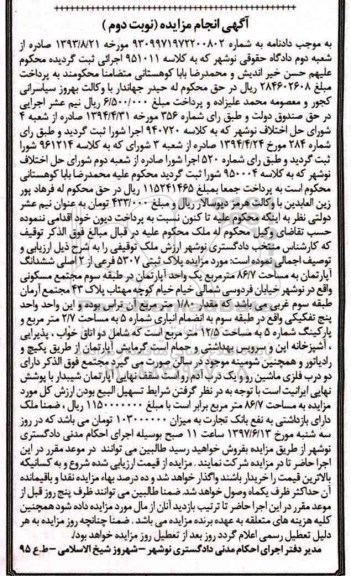 آگهی انجام مزایده (نوبت دوم )
به موجب دادنامه به شماره ۹۳۰۹۹۷۱۹۷۲۲۰۰۸۰۲ مورخه ۱۳۹۳/۸/۲۱ صادره از
شعبه دوم دادگاه حقوقی نوشهر که به کلاسه ۹۵۱۰۱۱ اجرائی ثبت گردیده محکوم
علیهم حسن خیر اندیش و محمدرضا بابا کوهستانی متضامنا محکومند به پرداخت
مبلغ ۲۸۴۶۰۲۶۰۸ ریال در حق محکوم له حیدر جهاندار با وکالت بهروز سیاسرانی
کجور و معصومه محمد علیزاده و پرداخت مبلغ ۶/۵۰۰/۰۰۰ ریال نیم عشر اجرایی
در حق صندوق دولت و طبق رای شماره ۳۵۶ مورخه ۱۳۹۴/۴/۳۱ صادره از شعبه ۴
شورای حل اختلاف نوشهر که به کلاسه ۹۴۰۷۲۰ اجرا شورا ثبت گردید و طبق رای
شماره ۲۸۴ مورخ ۱۳۹۴/۴/۲۴ صادره از شعبه ۳ شورای که به کلاسه ۹۶۱۲۱۴ شورا
ثبت گردید و طبق رای شماره ۵۲۰ اجرا شورا صادره از شعبه دوم شورای حل اختلاف
نوشهر که به کلاسه ۹۵۰۰۰۴ شورا ثبت گردید محکوم علیه محمدرضا بابا کوهستانی
محکوم است به پرداخت جمعا بمبلغ ۱۱۵۲۴۱۴۶۵ ریال در حق محکوم له فرهاد پور
زین العابدین با وکالت هرمز دیوسالار ریال و مبلغ ۴۳۳/۰۰۰ تومان به عنوان نیم عشر
دولتی نظر به اینکه محکوم علیه تا کنون نسبت به پرداخت دیون خود اقدامی ننموده
حسب تقاضای وکیل محکوم له ملک محکوم علیه در قبال مبالغ فوق الذکر توقیف
که کارشناس منتخب دادگستری نوشهر ارزش ملک توقیفی را به شرح ذیل ارزیابی و
توصیف اجمالی نموده است: مورد مزایده پلاک ثبتی ۵۳۰۷ فرعی از ۲ اصلی ششدانگ
آپارتمان به مساحت ۸۶/۷ مترمربع یک واحد آپارتمان در طبقه سوم مجتمع مسکونی
واقع در نوشهر خیابان فردوسی شمالی خیام کوچه مهتاب پلاک ۴۳ مجتمع آرمان
طبقه سوم غربی می باشد که مقدار ۱/۸۰ متر مربع آن تراس بوده و این واحد واحد
پنج تفکیکی واقع در طبقه سوم به انضمام انباری شماره ۵ به مساحت ۲/۷ متر مربع و
پارکینگ شماره ۵ به مساحت ۱۲/۵ متر مربع است که شامل دو اتاق خواب ، پذیرایی
، آشپزخانه اپن و سرویس بهداشتی و حمام است گرمایش آپارتمان از طریق پکیج و
رادیاتور و همچنین شومینه موجود در سالن صورت می گیرد مجتمع فوق الذکر دارای
دو درب فلزی ماشین رو و یک درب آدم رو است سقف نهایی آپارتمان شیبدار با پوشش
نهایی ایرانیت است با توجه به در نظر گرفتن شرایط تسهیل البیع بودن ارزش کل مورد
مزایده به مساحت ۸۶/۷ متر مربع برابر است با مبلغ ۱۱۵۰۰۰۰۰۰۰ ریال ، ضمنا ملک
دارای بازداشتی به نفع بانک تجارت به میزان ۱۰۳۰۰۰۰۰۰ تومان می باشد که در روز
سه شنبه مورخ ۱۳۹۷/۶/۱۳ ساعت ۱۱ صبح بوسیله اجرای احکام مدنی دادگستری
نوشهر از طریق مزایده بفروش خواهید رسید طالبین می توانند در موعد مقرر در این
اجرا حاضر تا در مزایده شرکت نمایند . مزایده از قیمت ارزیابی شده شروع و به کسانیکه
بالاترین قیمت را خریدار باشند واگذار خواهد شد و ده درصد بهاء مزایده نقدا و باقیمانده
آن حداکثر ظرف یکماه وصول خواهد شد. ضمنا طالبین می توانند ظرف پنج روز قبل از
موعد مقرر در این اجرا حاضر تا ترتیب بازدید آنان از مال مورد مزایده داده شود همچنین
کلیه هزینه های متعلقه به عهده برنده مزایده می باشد . ضمنا چنانچه روز مزایده به هر
دلیل تعطیل رسمی اعلام گردد روز بعد از تعطیل روز مزایده خواهد بود/
مدیر دفتر اجرای احکام مدنی دادگستری نوشهر – شهروز شیخ الاسلامی –ط.ع ۹۵